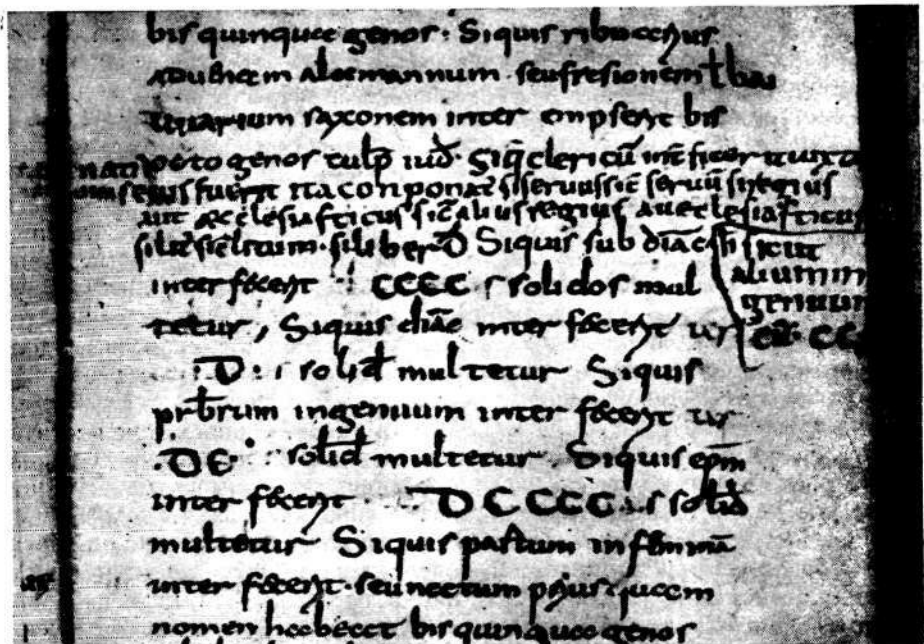 bisquinquagenos· Siquis ribuarius
aduenam alamannum seufresionem ł bai
uuarium saxonem inter empserit bis
octogenos culp̄ iud̄· Siq̄ clericū int̄ficer iuxta
nati fuerit ita conponat̄ si seruus sic̄ seruū si regius
aut æcclesiasticus sic̄ alius regius au eclesiasticus
si lit̄ sic litum· si liber Siquis sub diac̄ sicut
inter fecerit ·· CCCC ·· solidos mul alium in
tetur, Siquis diac̄ inter fecerit us genuum
·D· solid̄ multetur Siquis CC
prb̄rum ingenuum inter fecerit us
·DC· solid̄ multetur Siquis ep̄m
inter fecerit ·DCCCC· solid̄
multetur Siquis partum infemina
inter fecerit· seu nectum priusquam
nomen habeat bisquinquagenos